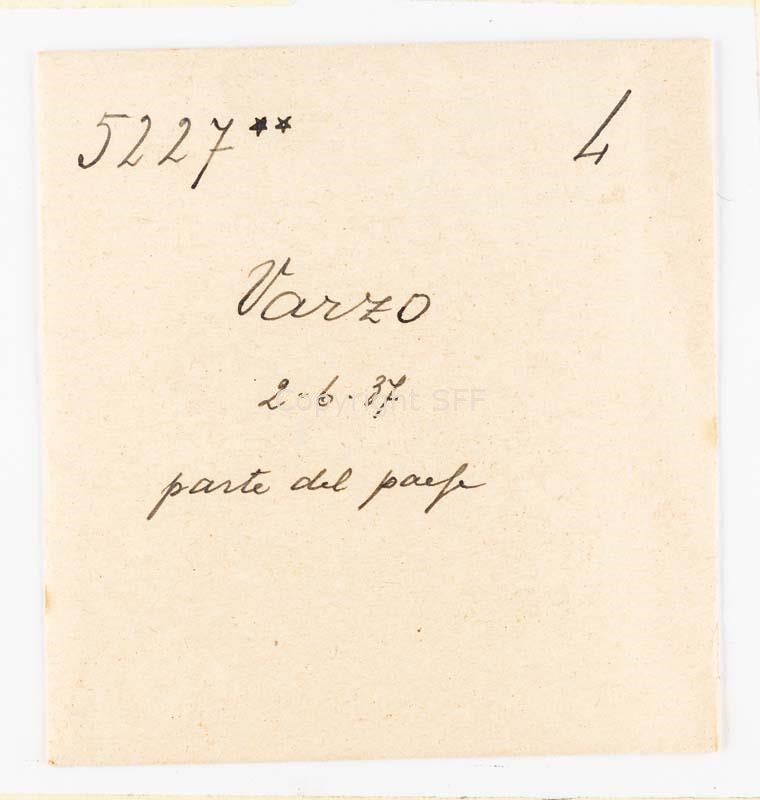 5227** 4
Varzo
2.6.37
Copyright SFF
parte del paese